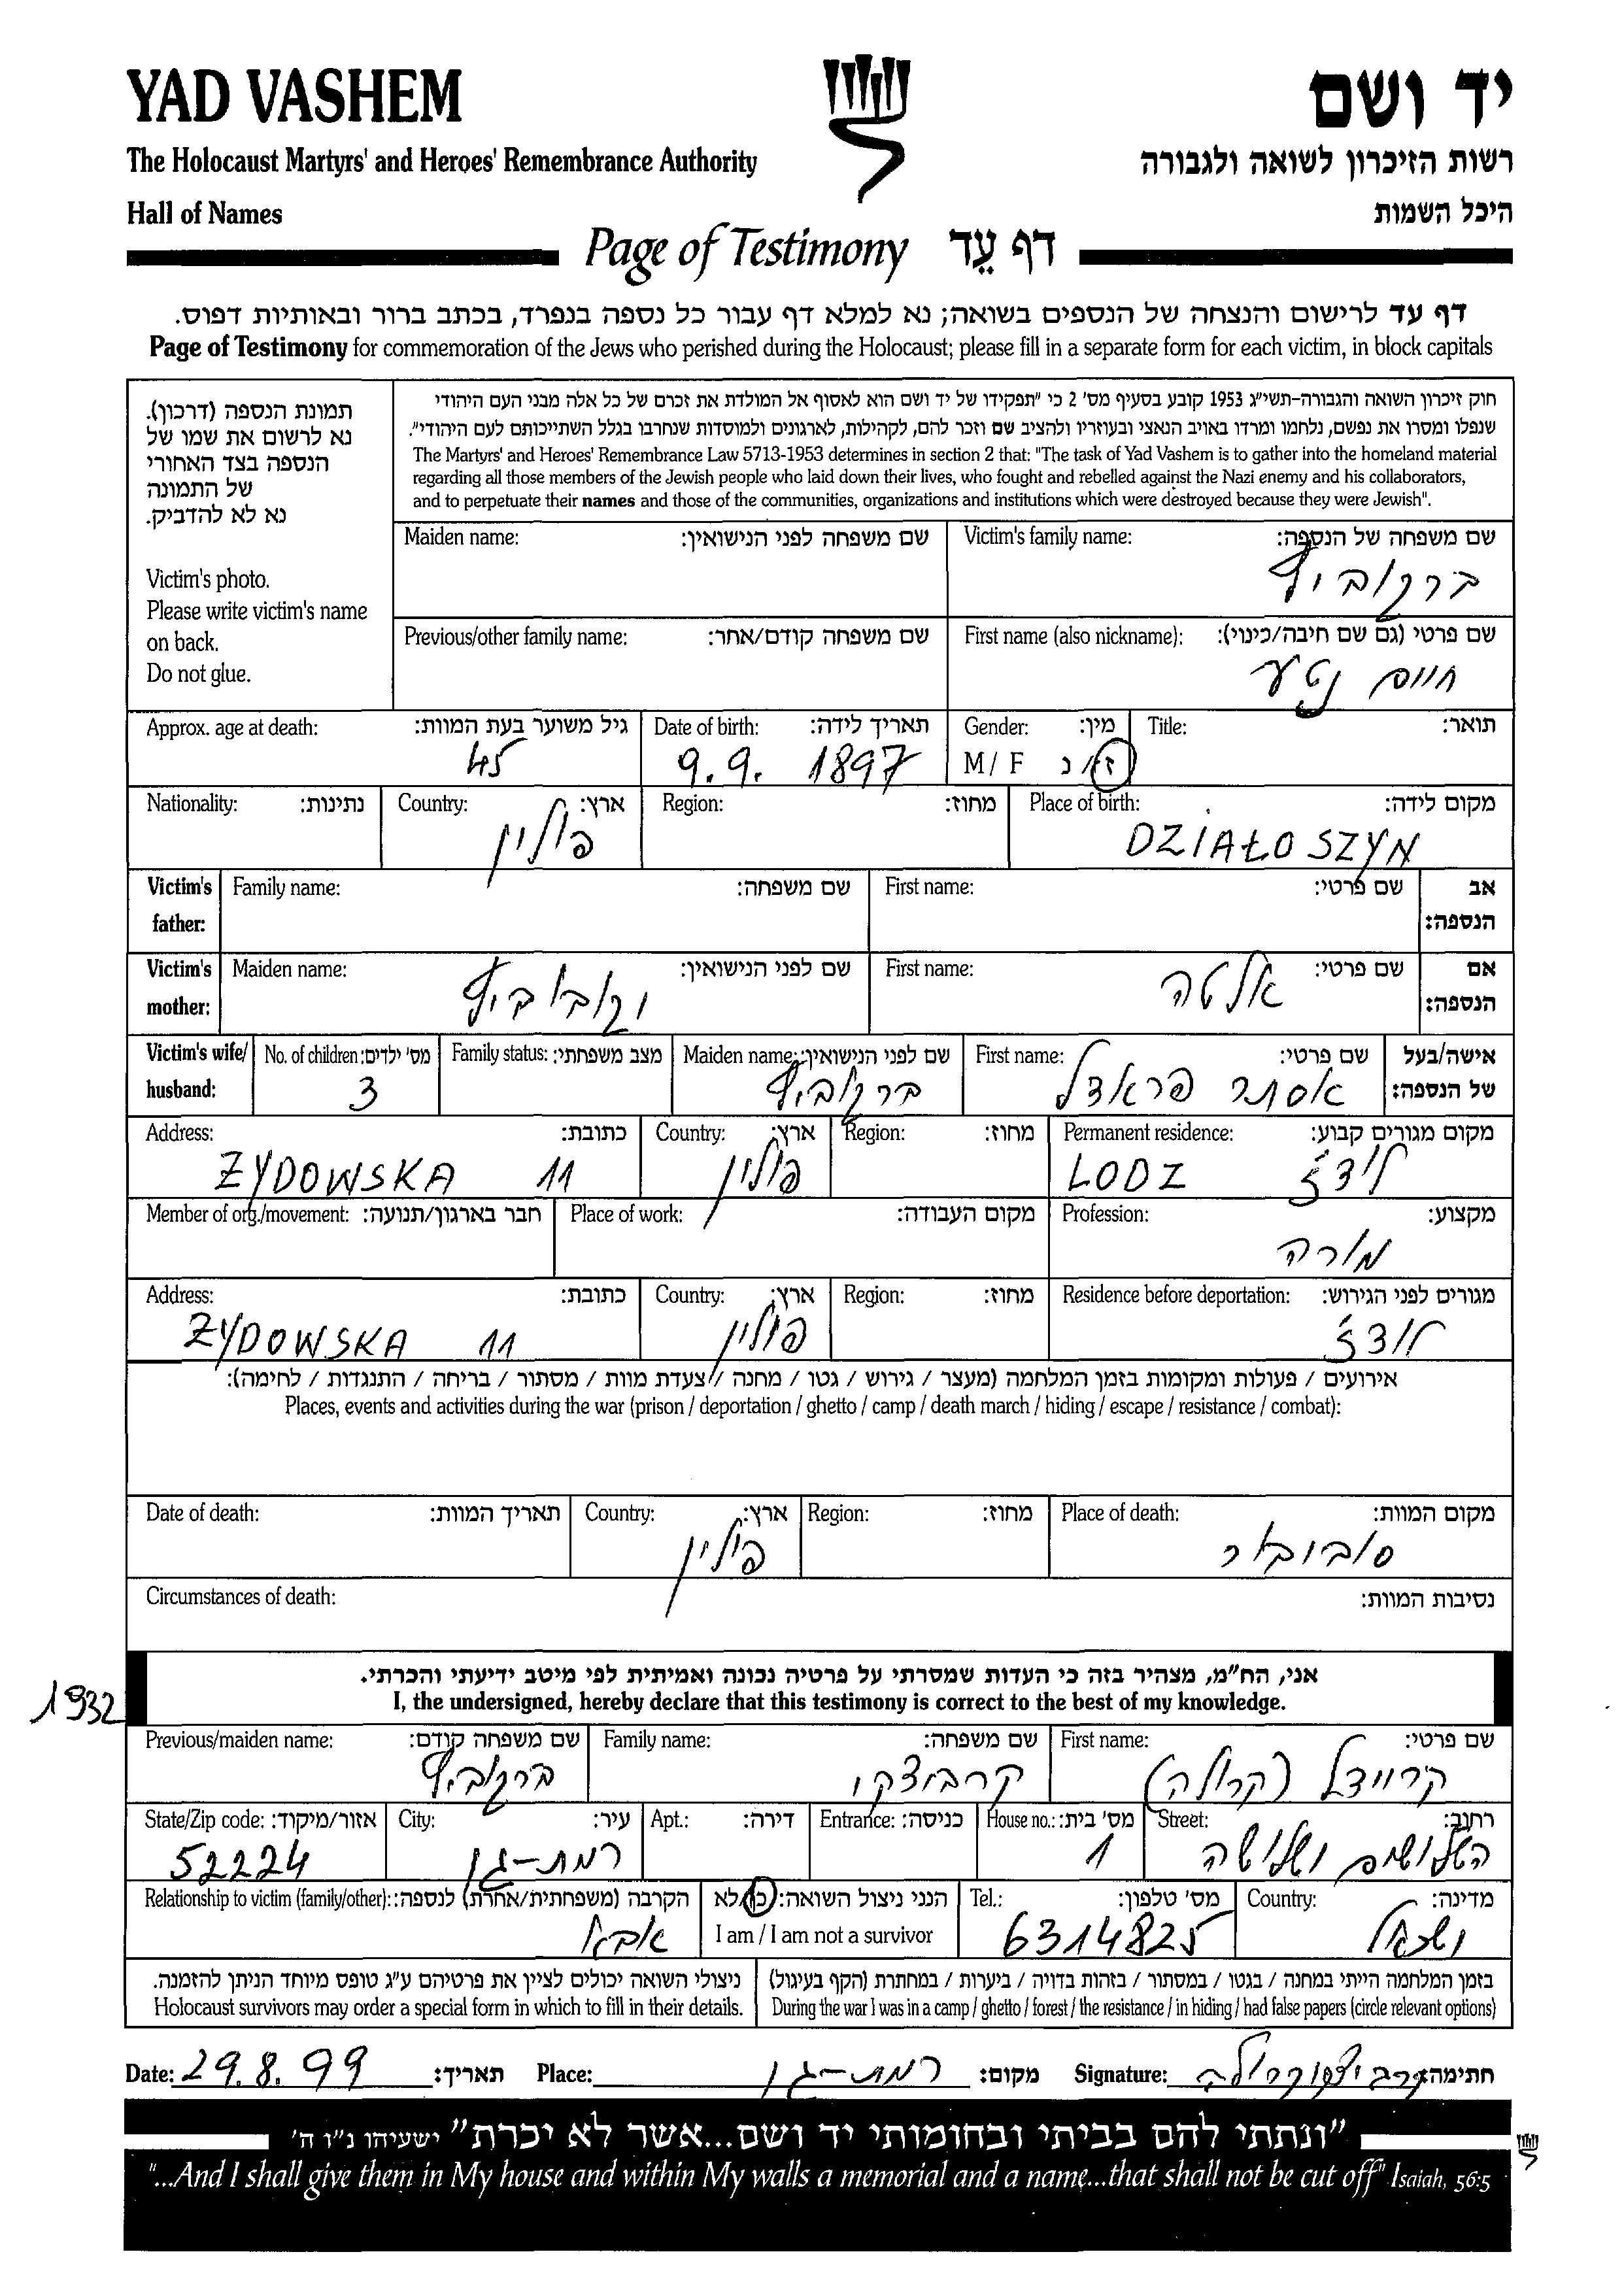 YAD VASHEM
יד ושם
The Holocaust Martyrs' and Heroes' Remembrance Authority
רשות הזיכרון לשואה ולגבורה
Hall of Names
היכל השמות
Page of Testimony דף עֵד
דף עד לרישום והנצחה של הנספים בשואה; נא למלא דף עבור כל נספה בנפרד, בכתב ברור ובאותיות דפוס.
Page of Testimony for commemoration of the Jews who perished during the Holocaust; please fill in a separate form for each victim, in block capitals
תמונת הנספה (דרכון).
נא לרשום את שמו של
הנספה בצד האחורי
של התמונה
נא לא להדביק.
Victim's photo.
Please write victim's name
on back.
Do not glue.
חוק זיכרון השואה והגבורה-תשי"ג 1953 קובע בסעיף מס' 2 כי "תפקידו של יד ושם הוא לאסוף אל המולדת את זכרם של כל אלה מבני העם היהודי
שנפלו ומסרו את נפשם, נלחמו ומרדו באויב הנאצי ובעוזריו ולהציב שם וזכר להם, לקהילות, לארגונים ולמוסדות שנחרבו בגלל השתייכותם לעם היהודי".
The Martyrs' and Heroes' Remembrance Law 5713-1953 determines in section 2 that: "The task of Yad Vashem is to gather into the homeland material
regarding all those members of the Jewish people who laid down their lives, who fought and rebelled against the Nazi enemy and his collaborators,
and to perpetuate their names and those of the communities, organizations and institutions which were destroyed because they were Jewish".
Victim's family name: שם משפחה של הנספה:
ברקוביץ
Maiden name: שם משפחה לפני הנישואין:
First name (also nickname): שם פרטי (גם שם חיבה/כינוי):
חיים נטע
Previous/other family name: שם משפחה קודם/אחר:
Title: תואר:
Gender: מין:
M / F ז / נ
Date of birth: תאריך לידה:
9.9. 1897
Approx. age at death: גיל משוער בעת המוות:
45
Place of birth: מקום לידה:
DZIAŁOSZYN
Region: מחוז:
Country: ארץ:
פולין
Nationality: נתינות:
Victim's father: אב הנספה:
First name: שם פרטי:
Family name: שם משפחה:
Victim's mother: אם הנספה:
First name: שם פרטי:
אלטה
Maiden name: שם לפני הנישואין:
Victim's wife/husband: אישה/בעל של הנספה:
First name: שם פרטי:
אסתר פראדל
Maiden name: שם לפני הנישואין:
ברקוביץ
Family status: מצב משפחתי:
No. of children: מס' ילדים:
3
Permanent residence: מקום מגורים קבוע:
LODZ לודז'
Region: מחוז:
Country: ארץ:
פולין
Address: כתובת:
ŻYDOWSKA 11
Profession: מקצוע:
מורה
Place of work: מקום העבודה:
Member of org./movement: חבר בארגון/תנועה:
Residence before deportation: מגורים לפני הגירוש:
לודז'
Region: מחוז:
Country: ארץ:
פולין
Address: כתובת:
ŻYDOWSKA 11
אירועים / פעולות ומקומות בזמן המלחמה (מעצר / גירוש / גטו / מחנה / צעדת מוות / מסתור / בריחה / התנגדות / לחימה):
Places, events and activities during the war (prison / deportation / ghetto / camp / death march / hiding / escape / resistance / combat):
Place of death: מקום המוות:
סוביבור
Region: מחוז:
Country: ארץ:
פולין
Date of death: תאריך המוות:
Circumstances of death: נסיבות המוות:
אני, הח"מ, מצהיר בזה כי העדות שמסרתי על פרטיה נכונה ואמיתית לפי מיטב ידיעתי והכרתי.
I, the undersigned, hereby declare that this testimony is correct to the best of my knowledge.
1932
First name: שם פרטי:
קריידל (קרולה)
Family name: שם משפחה:
קרביצקי
Previous/maiden name: שם משפחה קודם:
ברקוביץ
Street: רחוב:
השלושים ושלושה
House no.: מס' בית:
1
Entrance: כניסה:
Apt.: דירה:
City: עיר:
רמת-גן
State/Zip code: אזור/מיקוד:
52224
Country: מדינה:
ישראל
Tel.: מס' טלפון:
6314825
הנני ניצול השואה: כן/לא
I am / I am not a survivor
Relationship to victim (family/other): הקרבה (משפחתית/אחרת) לנספה:
אבא
בזמן המלחמה הייתי במחנה / בגטו / במסתור / בזהות בדויה / ביערות / במחתרת (הקף בעיגול)
During the war I was in a camp / ghetto / forest / the resistance / in hiding / had false papers (circle relevant options)
ניצולי השואה יכולים לציין את פרטיהם ע"ג טופס מיוחד הניתן להזמנה.
Holocaust survivors may order a special form in which to fill in their details.
Date: 29.8.99 תאריך: Place: רמת-גן מקום: Signature: חתימה:
"ונתתי להם בביתי ובחומותי יד ושם...אשר לא יכרת" ישעיהו נ"ו ה'
"...And I shall give them in My house and within My walls a memorial and a name...that shall not be cut off" Isaiah, 56:5